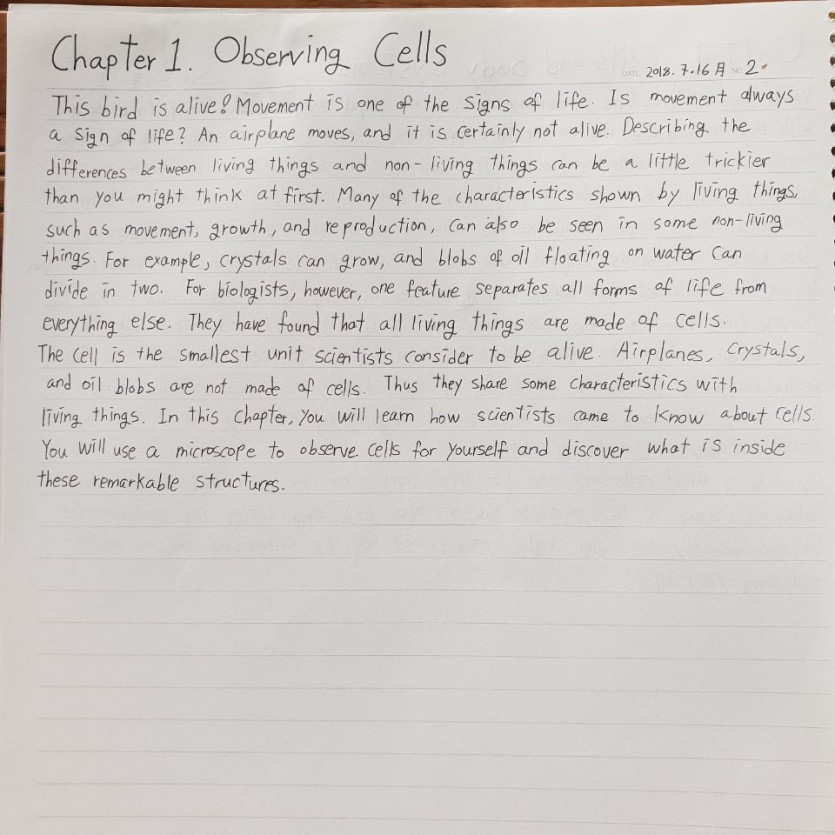 Chapter 1. Observing Cells
2018. 7.16 月 2
This bird is alive! Movement is one of the signs of life. Is movement always
a sign of life? An airplane moves, and it is certainly not alive. Describing the
differences between living things and non-living things can be a little trickier
than you might think at first. Many of the characteristics shown by living things,
such as movement, growth, and reproduction, can also be seen in some non-living
things. For example, crystals can grow, and blobs of oil floating on water can
divide in two. For biologists, however, one feature separates all forms of life from
everything else. They have found that all living things are made of cells.
The cell is the smallest unit scientists consider to be alive. Airplanes, crystals,
and oil blobs are not made of cells. Thus they share some characteristics with
living things. In this chapter, you will learn how scientists came to know about cells.
You will use a microscope to observe cells for yourself and discover what is inside
these remarkable structures.